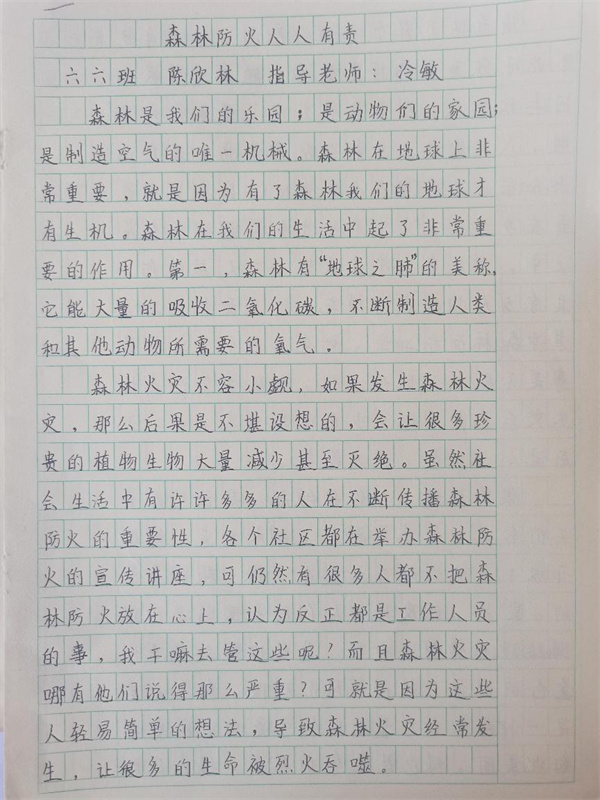 森林防火人人有责
六六班 陈欣林 指导老师：冷敏
森林是我们的乐园；是动物们的家园；
是制造空气的唯一机械。森林在地球上非
常重要，就是因为有了森林我们的地球才
有生机。森林在我们的生活中起了非常重
要的作用。第一，森林有“地球之肺”的美称，
它能大量的吸收二氧化碳，不断制造人类
和其他动物所需要的氧气。
森林火灾不容小觑，如果发生森林火
灾，那么后果是不堪设想的，会让很多珍
贵的植物生物大量减少甚至灭绝。虽然社
会生活中有许许多多的人在不断传播森林
防火的重要性，各个社区都在举办森林防
火的宣传讲座，可仍然有很多人都不把森
林防火放在心上，认为反正都是工作人员
的事，我干嘛去管这些呢？而且森林火灾
哪有他们说得那么严重？可就是因为这些
人轻易简单的想法，导致森林火灾经常发
生，让很多的生命被烈火吞噬。